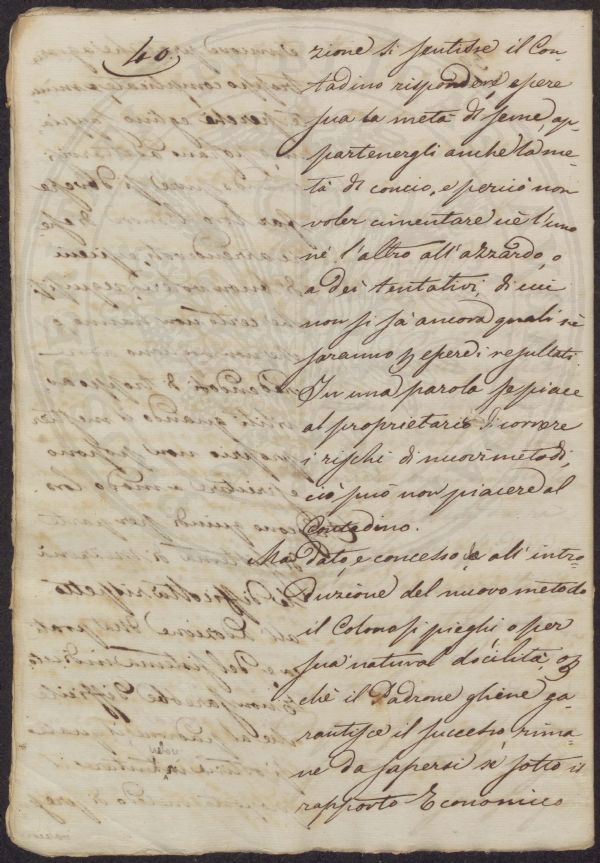 40.
zione si sentisse il Con-
tadino rispondere, essere
sua la metà di seme, ap-
partenergli anche la me-
tà di concio, e perciò non
voler cimentare nè l'uno
nè l'altro all'azzardo, o
a dei tentativi, di cui
non si sà ancora quali nè
saranno p essere i resultati.
In una parola se piace
al proprietario di correre
i rischi di nuovi metodi,
ciò può non piacere al
Contadino.
Ma dato, e concesso, che all'intro-
duzione del nuovo metodo
il Colono si pieghi o per
sua natural docilità, o p
chè il Padrone gliene ga-
rantisce il successo, rima-
ne da sapersi sè sotto il
rapporto Economico